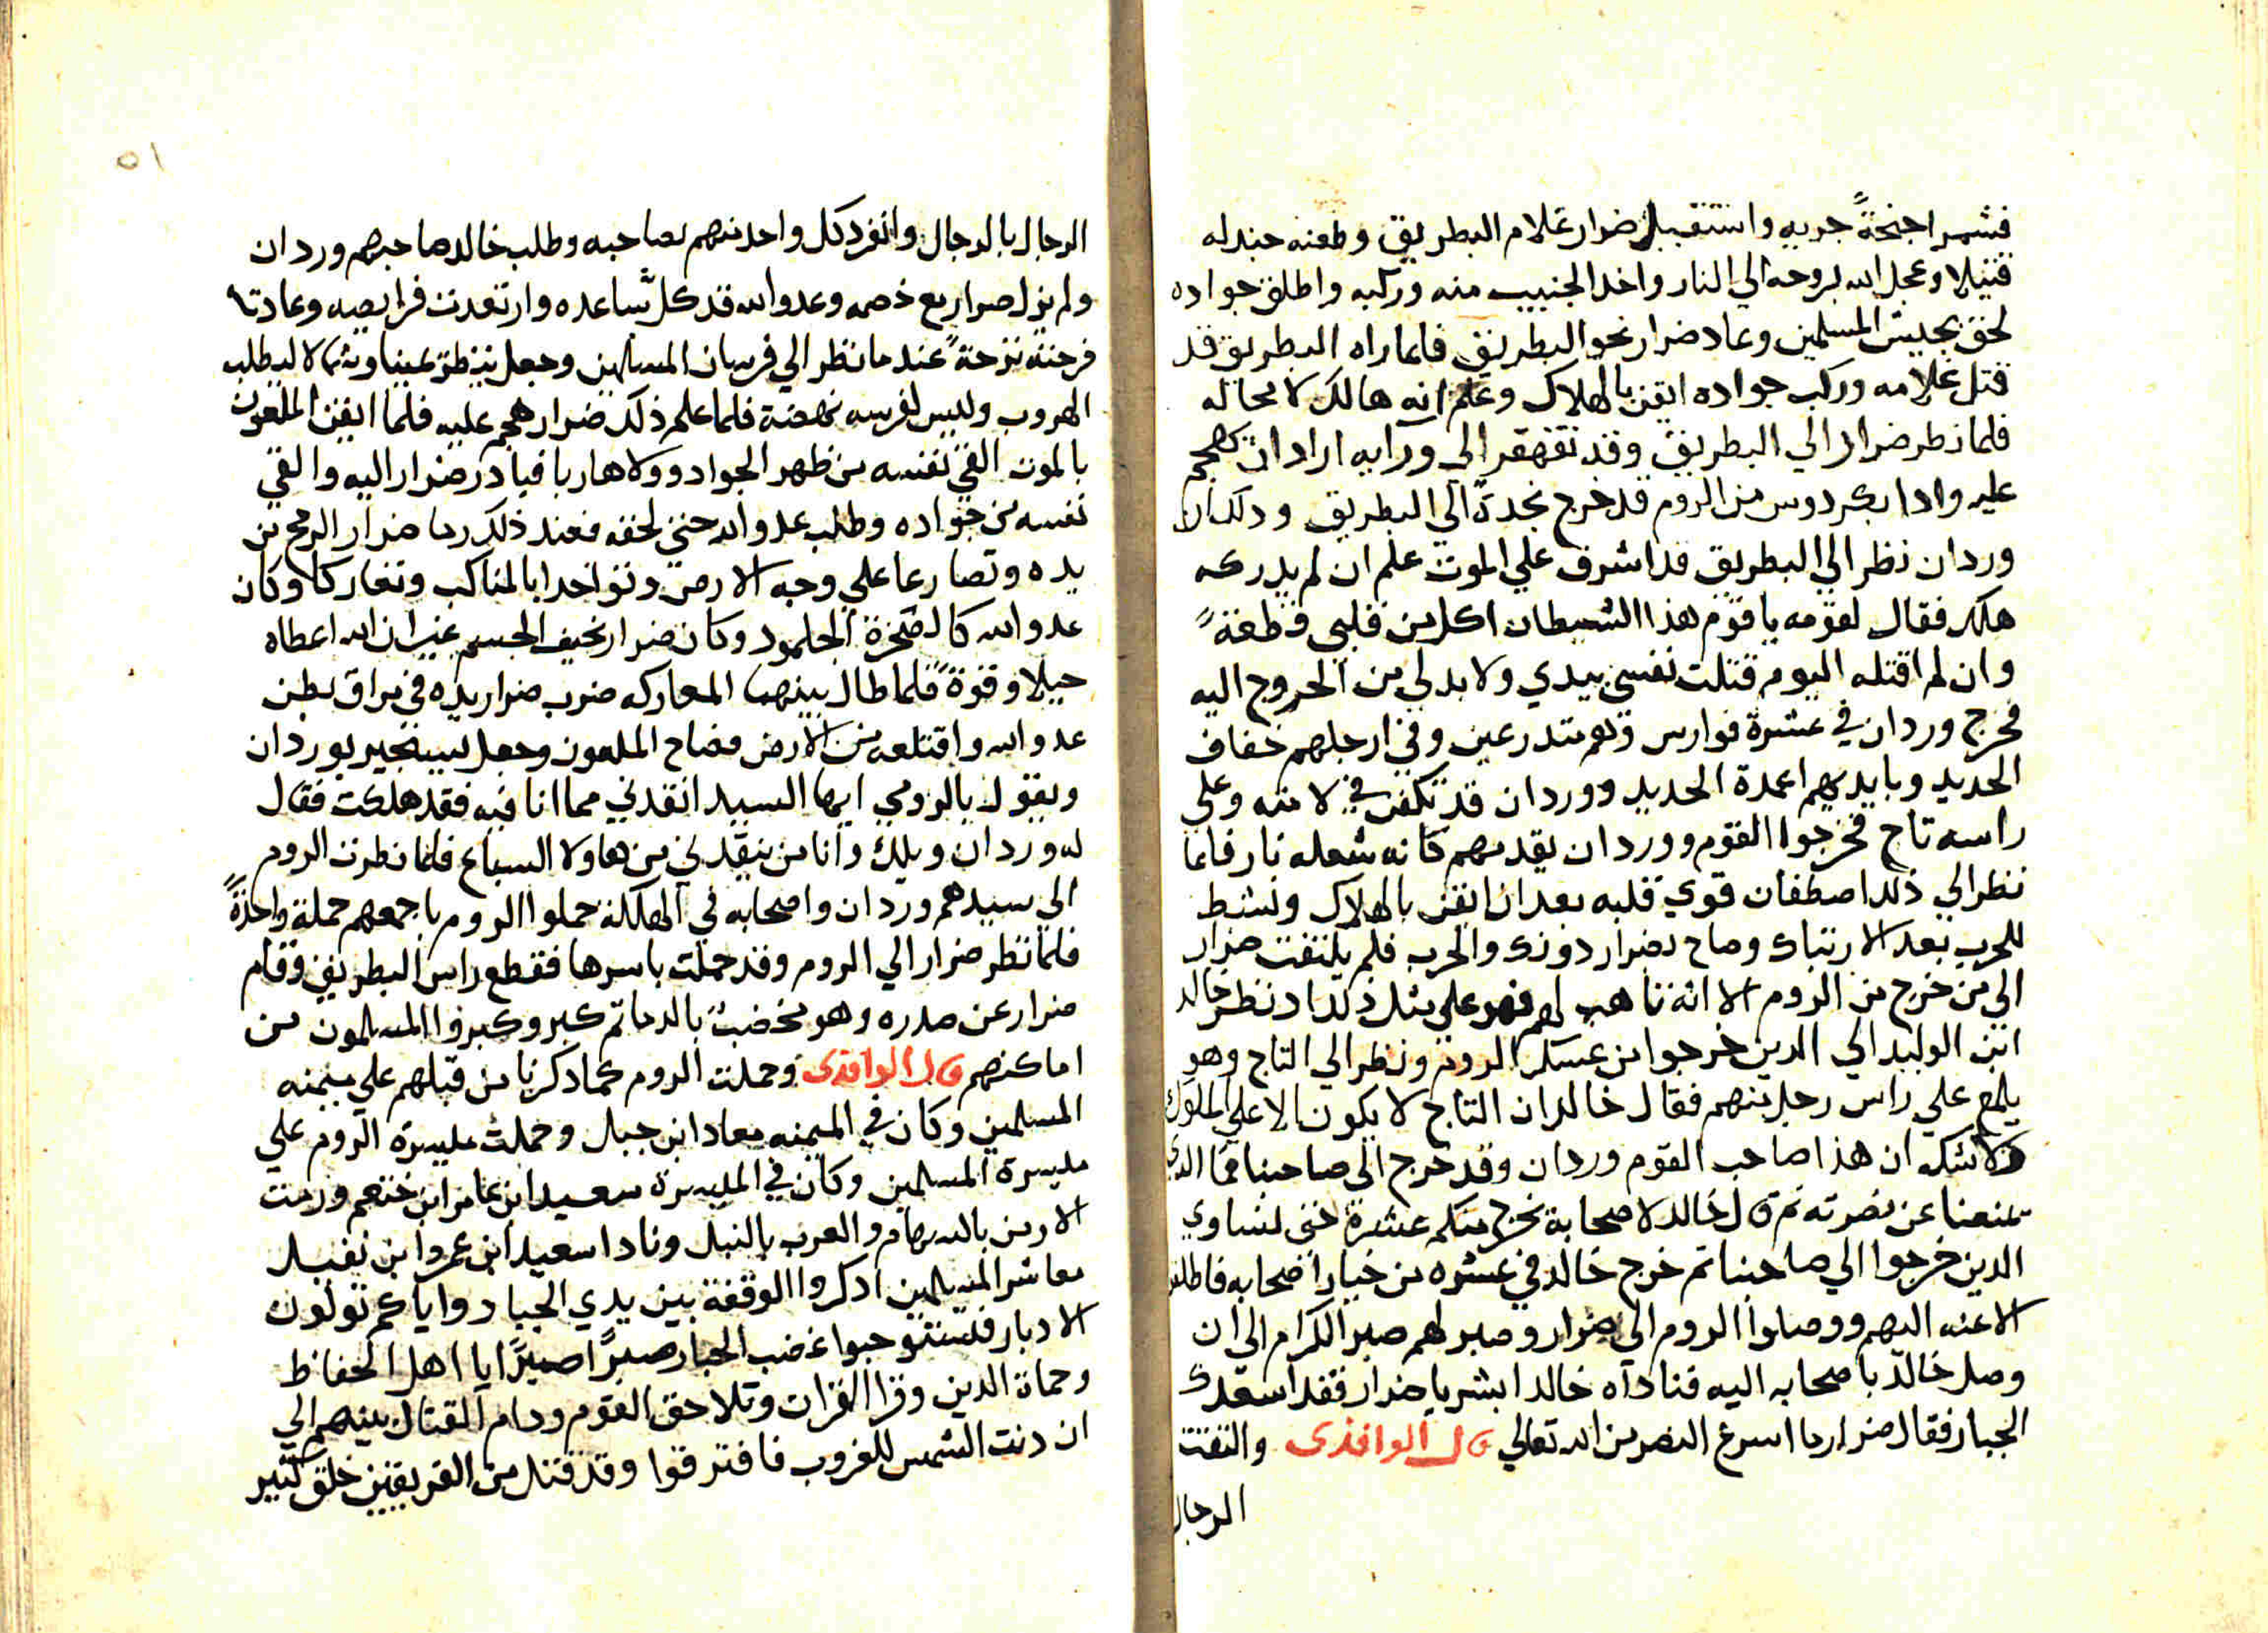 فشمر اجنحةً جريه واستقبل ضرار غلام البطريق وطعنه جندله
قتيلا وعجل الله بروحه الي النار واخد الجنيب منه وركبه واطلق جواده
لحق بجيش المسلمين وعاد ضرار نحو البطريق فلما راه البطريق قد
قتل غلامه وركب جواده ايقن بالهلاك وعلم انه هالك لا محاله
فلما نظر ضرار الي البطريق وقد تقهقر الي ورايه اراد ان يهجم
عليه وادا بكردوس من الروم قد خرج نجدةً الي البطريق ودلك ان
وردان نظر الي البطريق قد اشرف علي الموت علم ان لم يدركه
هلك فقال لقومه يا قوم هذا الشيطان اكل من قلبي قطعةً
وان لم اقتله اليوم قتلت نفسي بيدي ولا بد لي من الخروج اليه
فخرج وردان في عشرة فوارس وهم متدرعين وفي ارجلهم خفاف
الحديد وبايديهم اعمدة الحديد ووردان قد تكفن في لامته وعلي
راسه تاج فخرجوا القوم ووردان يقدمهم كانه شعله نار فلما
نظر الي ذلك اصطفان قوي قلبه بعد ان ايقن بالهلاك ونشط
للحرب بعد الارتباك وصاح بضرار دونك والحرب فلم يلتفت ضرار
الي من خرج من الروم الا انه تاهب لهم فهو علي مثل ذلك اد نظر خالد
ابن الوليد الي الدين خرجوا من عسكر الروم ونظر الي التاج وهو
يلمع علي راس رجل منهم فقال خالد ان التاج لا يكون الا علي الملوك
ولا شك ان هذا صاحب القوم وردان وقد خرج الي صاحبنا فما الدي
يمنعنا عن نصرته ثم قال خالد لاصحابة يخرج منكم عشرة حتي نساوي
الدين خرجوا الي صاحبنا تم خرج خالد في عشره من خيار اصحابه فاطلقوا
الاعنه اليهم ووصلوا الروم الي ضرار وصبر لهم صبر الكرام الي ان
وصل خالد باصحابه اليه فناداه خالد ابشر يا ضرار فقد اسعدك
الجبار فقال ضرار ما اسرع النصر من الله تعالي قال الواقدى والتفت
الرجال
٥١
الرجال بالرجال وانفرد كل واحد منهم بصاحبه وطلب خالد صاحبهم وردان
ولم يزل ضرار مع خصمه وعدو الله قد كل ساعده وارتعدت فرايصه وعادتا
فرحته نزحةً عندما نظر الي فرسان المسلمين وجعل ينظر يمينا وشمالا ليطلب
الهروب وليس لفرسه نهضة فلما علم ذلك ضرار هجم عليه فلما ايقن الملعون
بالموت القي نفسه من ظهر الجواد وولا هاربا فبادر ضرار اليه والقي
نفسه من جواده وطلب عدو الله حتي لحقه فعند ذلك رما ضرار الرمح من
يده وتصارعا علي وجه الارض وتواخدا بالمناكب وتعاركا وكان
عدو الله كالصخرة الجلمود وكان ضرار نحيف الجسم غير ان الله اعطاه
حيلا وقوةً فلما طال بينهما المعاركه ضرب ضرار يده في مراق بطن
عدو الله واقتلعه من الارض فصاح الملعون وجعل يستجير بوردان
ويقول بالرومي ايها السيد انقدني مما انا فيه فقد هلكت فقال
له وردان ويلك وانا من ينقدني من هاولا السباع فلما نظرت الروم
الي سيدهم وردان واصحابه في الهلكة حملوا الروم باجمعهم حملة واحدةً
فلما نظر ضرار الي الروم وقد حملت باسرها فقطع راس البطريق وقام
ضرار عن صدره وهو مخضب بالدما تم كبر وكبروا المسلمون من
اماكنهم قال الواقدى وحملت الروم كما دكرنا من قبلهم علي ميمنه
المسلمين وكان في الميمنه معاد ابن جبل وحملت ميسرة الروم علي
ميسرة المسلمين وكان في الميسرة سعيد ابن عامر ابن ختعم ورمت
الارمن بالسهام والعرب بالنبل ونادا سعيد ابن عمرو ابن نفيل
معاشر المسلمين ادكروا الوقفة بين يدي الجبار واياكم تولون
الادبار فتستوجبوا غضب الجبار صبرًا صبرًا يا اهل الحفاظ
وحماة الدين وقرا القران وتلاحق القوم ودام القتال بينهم الي
ان دنت الشمس للغروب فافترقوا وقد قتل من الفريقين خلق كتير